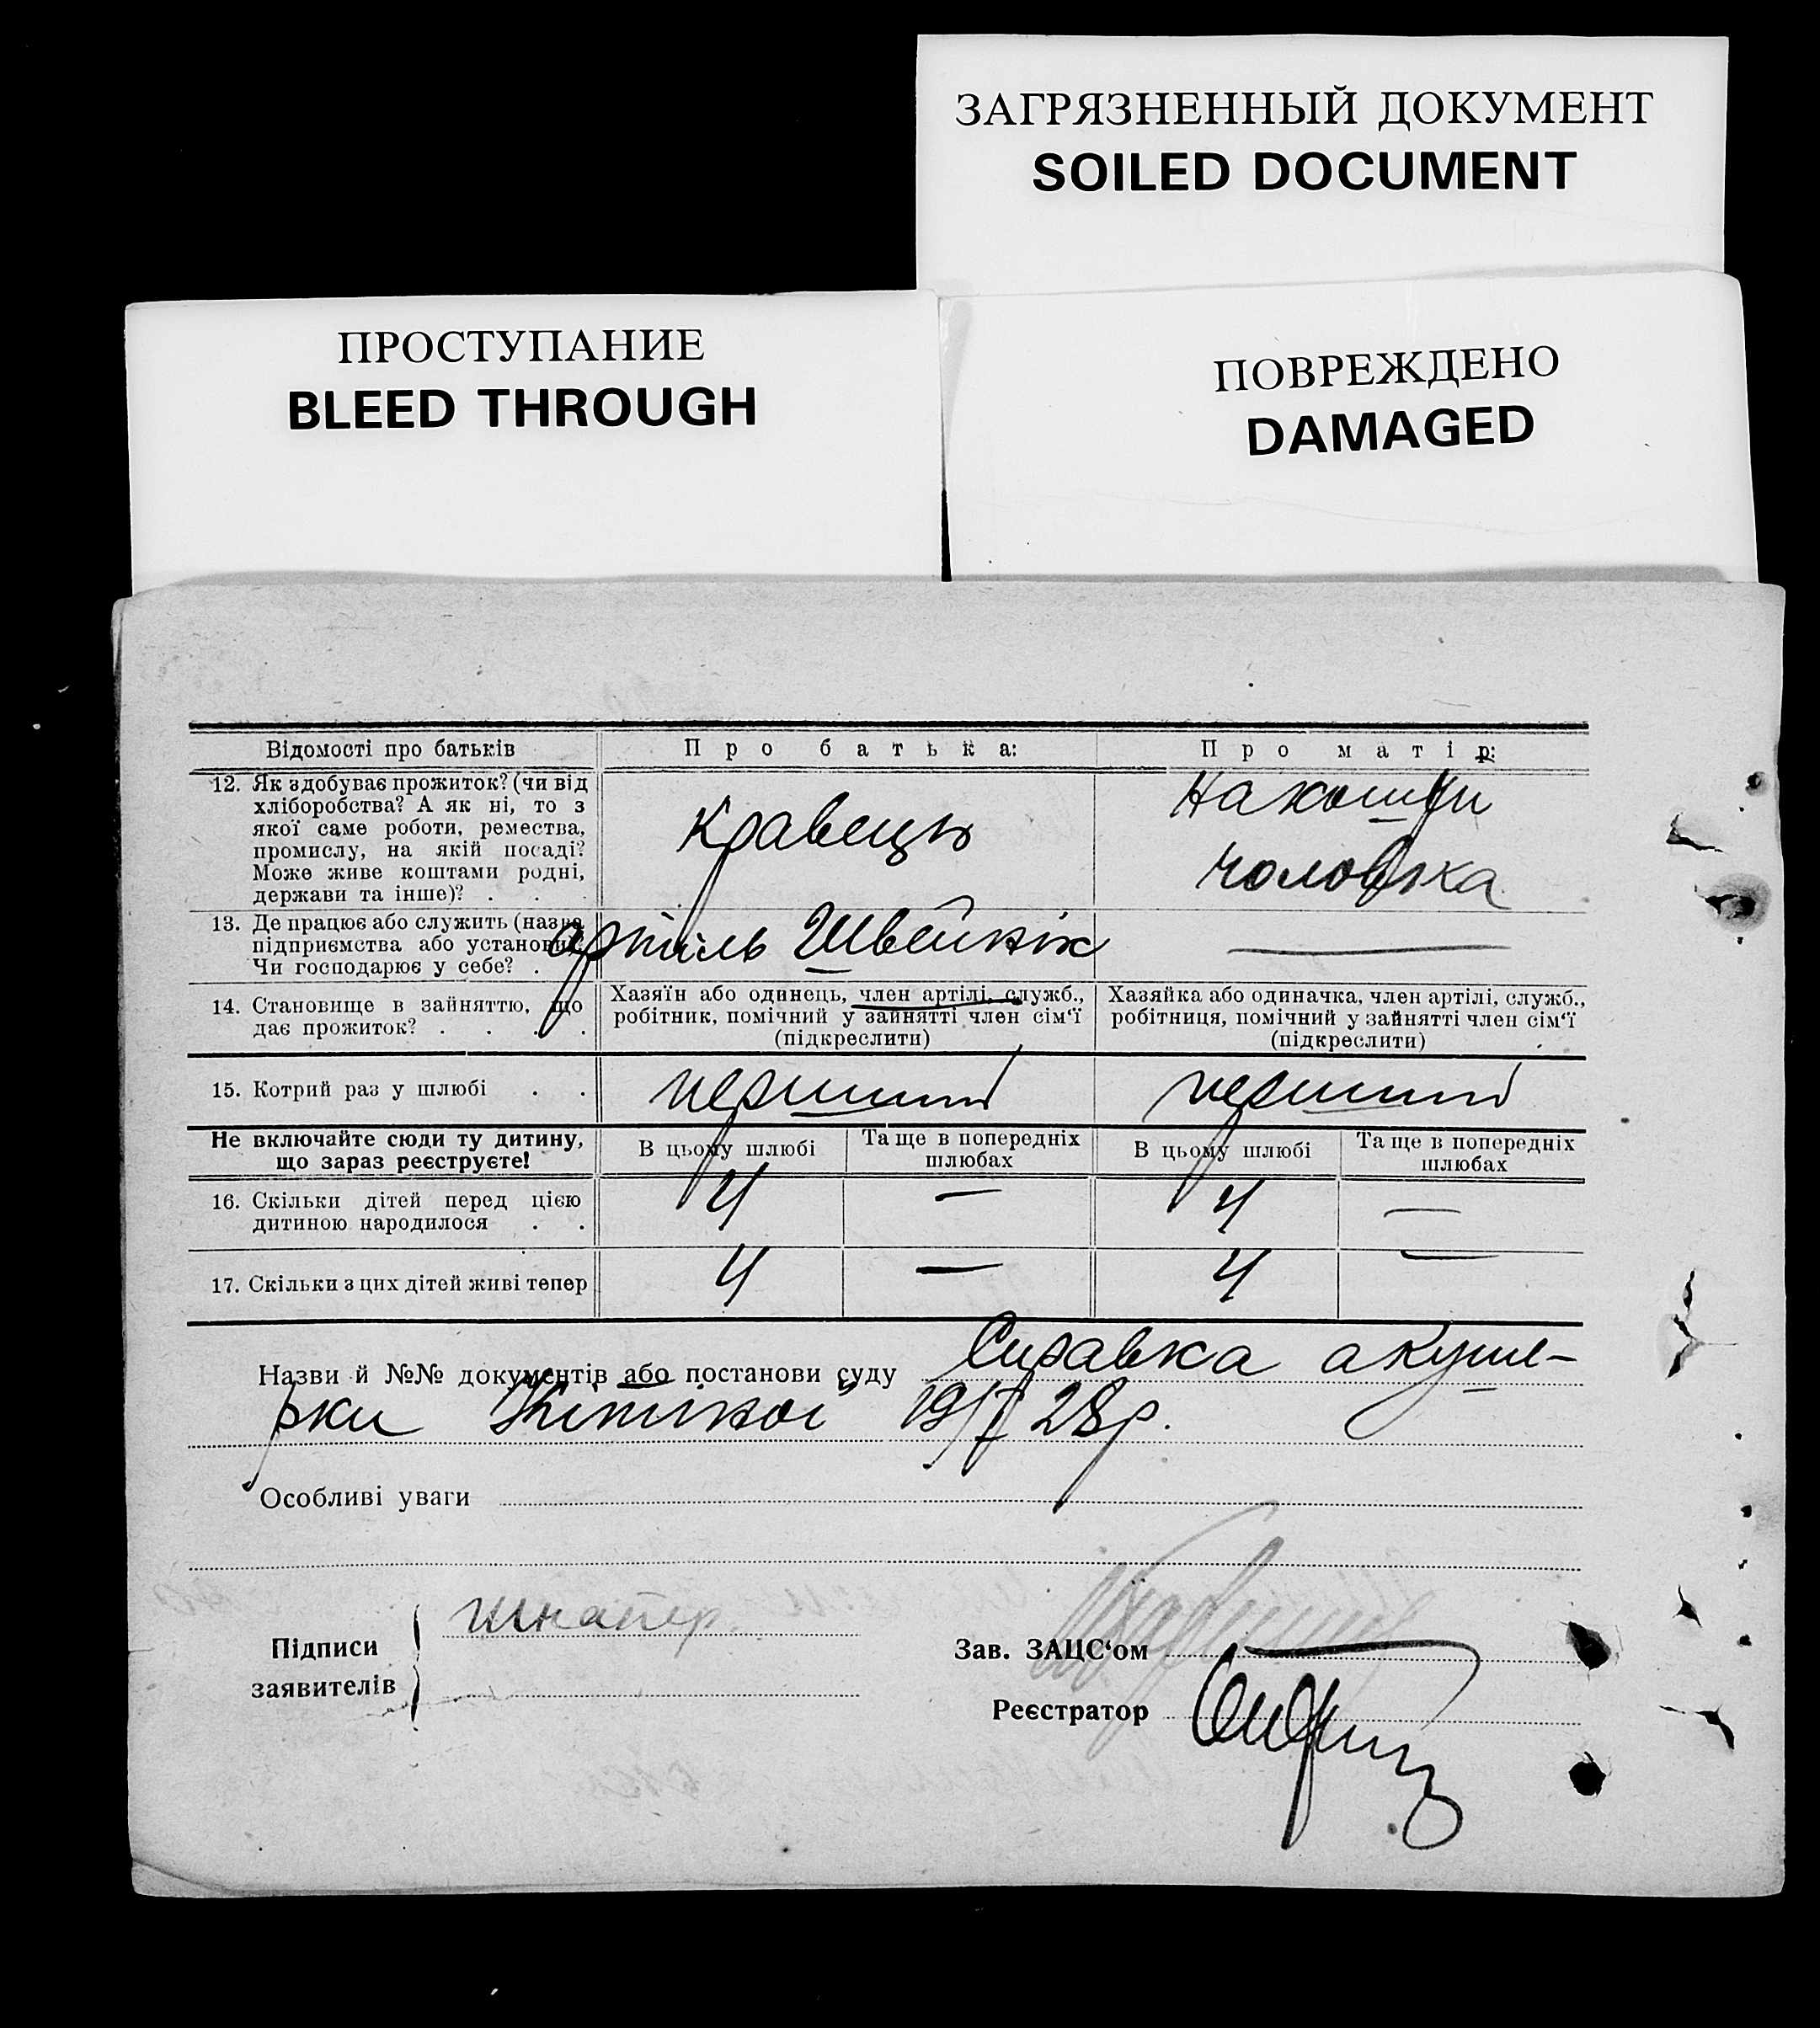 ЗАГРЯЗНЕННЫЙ ДОКУМЕНТ
SOILED DOCUMENT
ПРОСТУПАНИЕ
BLEED THROUGH
ПОВРЕЖДЕНО
DAMAGED
Відомості про батьків
Про батька:
Про матір:
12. Як здобуває прожиток? (чи від
хліборобства? А як ні, то з
якої саме роботи, ремества,
промислу, на якій посаді?
Може живе коштами родні,
держави та інше)? . . .
кравець
на кошти
чоловіка
13. Де працює або служить (назва
підприємства або установи)?
Чи господарює у себе? .
артіль Швейнік
—
14. Становище в зайняттю, що
дає прожиток? . . . .
Хазяїн або одинець, член артілі, служб.,
робітник, помічний у зайнятті член сім'ї
(підкреслити)
Хазяйка або одиначка, член артілі, служб.,
робітниця, помічний у зайнятті член сім'ї
(підкреслити)
15. Котрий раз у шлюбі . .
перший
перший
Не включайте сюди ту дитину,
що зараз реєструєте!
В цьому шлюбі
Та ще в попередніх
шлюбах
В цьому шлюбі
Та ще в попередніх
шлюбах
16. Скільки дітей перед цією
дитиною народилося . .
4 — 4 —
17. Скільки з цих дітей живі тепер
4 — 4 —
Назви й №№ документів або постанови суду Справка акуше-
рки 19/I 28р.
Особливі уваги
Підписи
заявителів
Шнапер
Зав. ЗАЦС'ом
Реєстратор